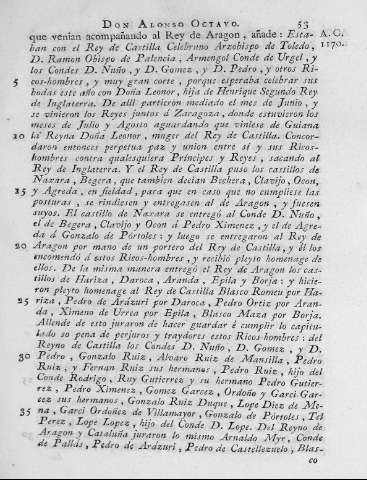 DON ALONSO OCTAVO. 53
que venian acompañando al Rey de Aragon, añade: Esta- A. C.
ban con el Rey de Castilla Celebruno Arzobispo de Toledo, 1170.
D. Ramon Obispo de Palencia, Armengol Conde de Urgel, y
los Condes D. Nuño, y D. Gomez, y D. Pedro, y otros Ri-
5 cos-hombres, y muy gran corte, porque esperaba celebrar sus
bodas este año con Doña Leonor, hija de Henrique Segundo Rey
de Inglaterra. De alli partieron mediado el mes de Junio, y
se vinieron los Reyes juntos á Zaragoza, donde estuvieron los
meses de Julio y Agosto aguardando que viniese de Guiana
10 la Reyna Doña Leonor, muger del Rey de Castilla. Concor-
daron entonces perpetua paz y union entre sí y sus Ricos-
hombres contra qualesquiera Príncipes y Reyes, sacando al
Rey de Inglaterra. Y el Rey de Castilla puso los castillos de
Naxara, Begera, que tambien decian Bechera, Clavijo, Ocon,
15 y Agreda, en fieldad, para que en caso que no cumpliese las
posturas, se rindiesen y entregasen al de Aragon, y fuesen
suyos. El castillo de Naxara se entregó al Conde D. Nuño,
el de Begera, Clavijo y Ocon á Pedro Ximenez, y el de Agre-
da á Gonzalo de Pórtoles: y luego se entregaron al Rey de
20 Aragon por mano de un portero del Rey de Castilla, y él los
encomendó á estos Ricos-hombres, y recibió pleyto homenage de
ellos. De la misma manera entregó el Rey de Aragon los cas-
tillos de Hariza, Daroca, Aranda, Epila y Borja: y hicie-
ron pleyto homenage al Rey de Castilla Blasco Romeu por Ha-
25 riza, Pedro de Arázuri por Daroca, Pedro Ortiz por Aran-
da, Ximeno de Urrea por Epila, Blasco Maza por Borja.
Allende de esto juraron de hacer guardar é cumplir lo capitu-
lado so pena de perjuros y traydores estos Ricos-hombres: del
Reyno de Castilla los Condes D. Nuño, D. Gomez, y D.
30 Pedro, Gonzalo Ruiz, Alvaro Ruiz de Mansilla, Pedro
Ruiz, y Fernan Ruiz sus hermanos, Pedro Ruiz, hijo del
Conde Rodrigo, Ruy Gutierrez y su hermano Pedro Gutier-
rez, Pedro Ximenez, Gomez Garcez, Ordoño y Garci Gar-
cez sus hermanos, Gonzalo Ruiz Duque, Lope Diez de Me-
35 na, Garci Ordoñez de Villamayor, Gonzalo de Pórtoles, Tel
Perez, Lope Lopez, hijo del Conde D. Lope. Del Reyno de
Aragon y Cataluña juraron lo mismo Arnaldo Myr, Conde
de Pallás, Pedro de Arázuri, Pedro de Castellezuelo, Blas-
co